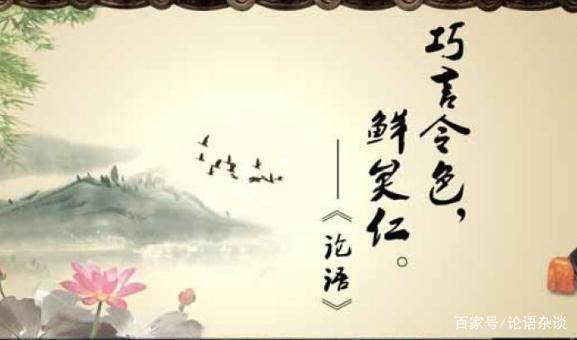 巧言令色，
鲜矣仁。
——《论语》
百家号/论语杂谈